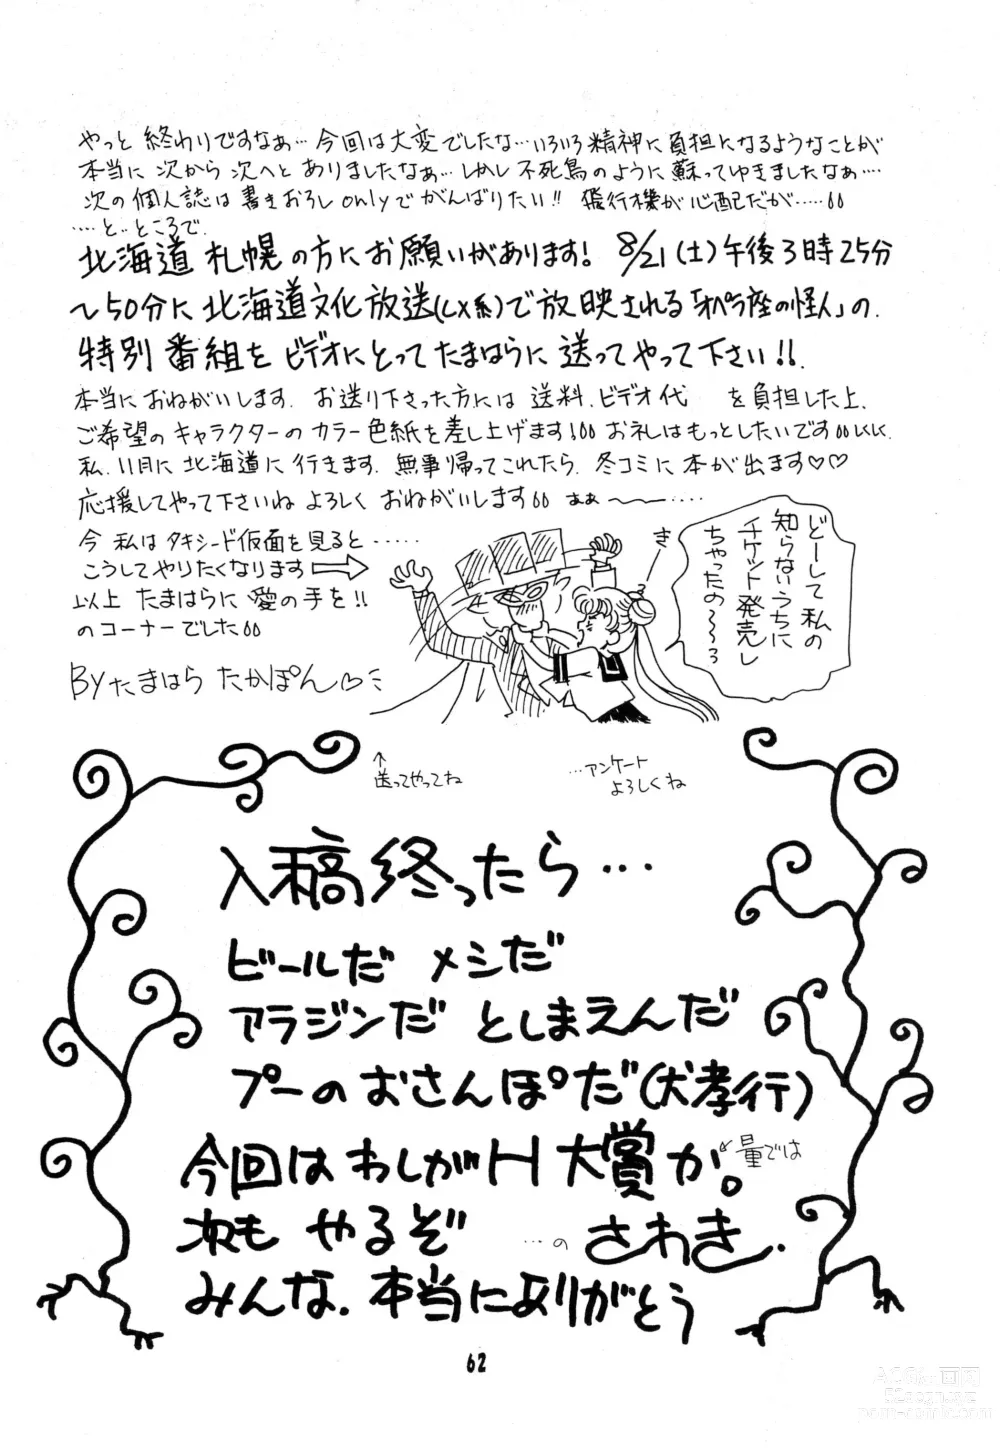 やっと 終わりですなぁ…今回は大変でしたな…いろいろ精神に負担になるようなことが
本当に 次から 次へと ありましたなぁ…しかし 不死鳥のように 蘇ってゆきましたなぁ…
次の個人誌は書きおろし onlyで がんばりたい!! 飛行機が心配だが……
…と…ところで
北海道 札幌 の方に お願いがあります! 8/21(土)午後3時25分
〜50分に 北海道文化放送(CX系)で放映される「オペラ座の怪人」の
特別 番組を ビデオにとって たまはらに 送って やって 下さい!!
本当に おねがいします. お送り下さった方には 送料.ビデオ代 を負担した上.
ご希望の キャラクターの カラー色紙を差し上げます! お礼はもっとしたいです
私.11月に 北海道に 行きます. 無事帰ってこれたら. 冬コミに 本が 出ます♡♡
応援してやって下さいね よろしく おねがいします あぁ〜……
今 私は タキシード仮面を見ると……
こうしてやりたくなります
以上 たまはらに 愛の手を!!
のコーナーでした
BY たまはら たかぽん♡
き
どーして 私の
知らないうちに
チケット発売し
ちゃったの〜〜
↑
送ってやってね
…アンケート
よろしくね
入稿終ったら…
ビールだ メシだ
アラジンだ としまえんだ
プーのおさんぽだ(犬孝行)
今回は わしがH大賞か。
量では
次も やるぞ …の さわき.
みんな.本当にありがとう
62